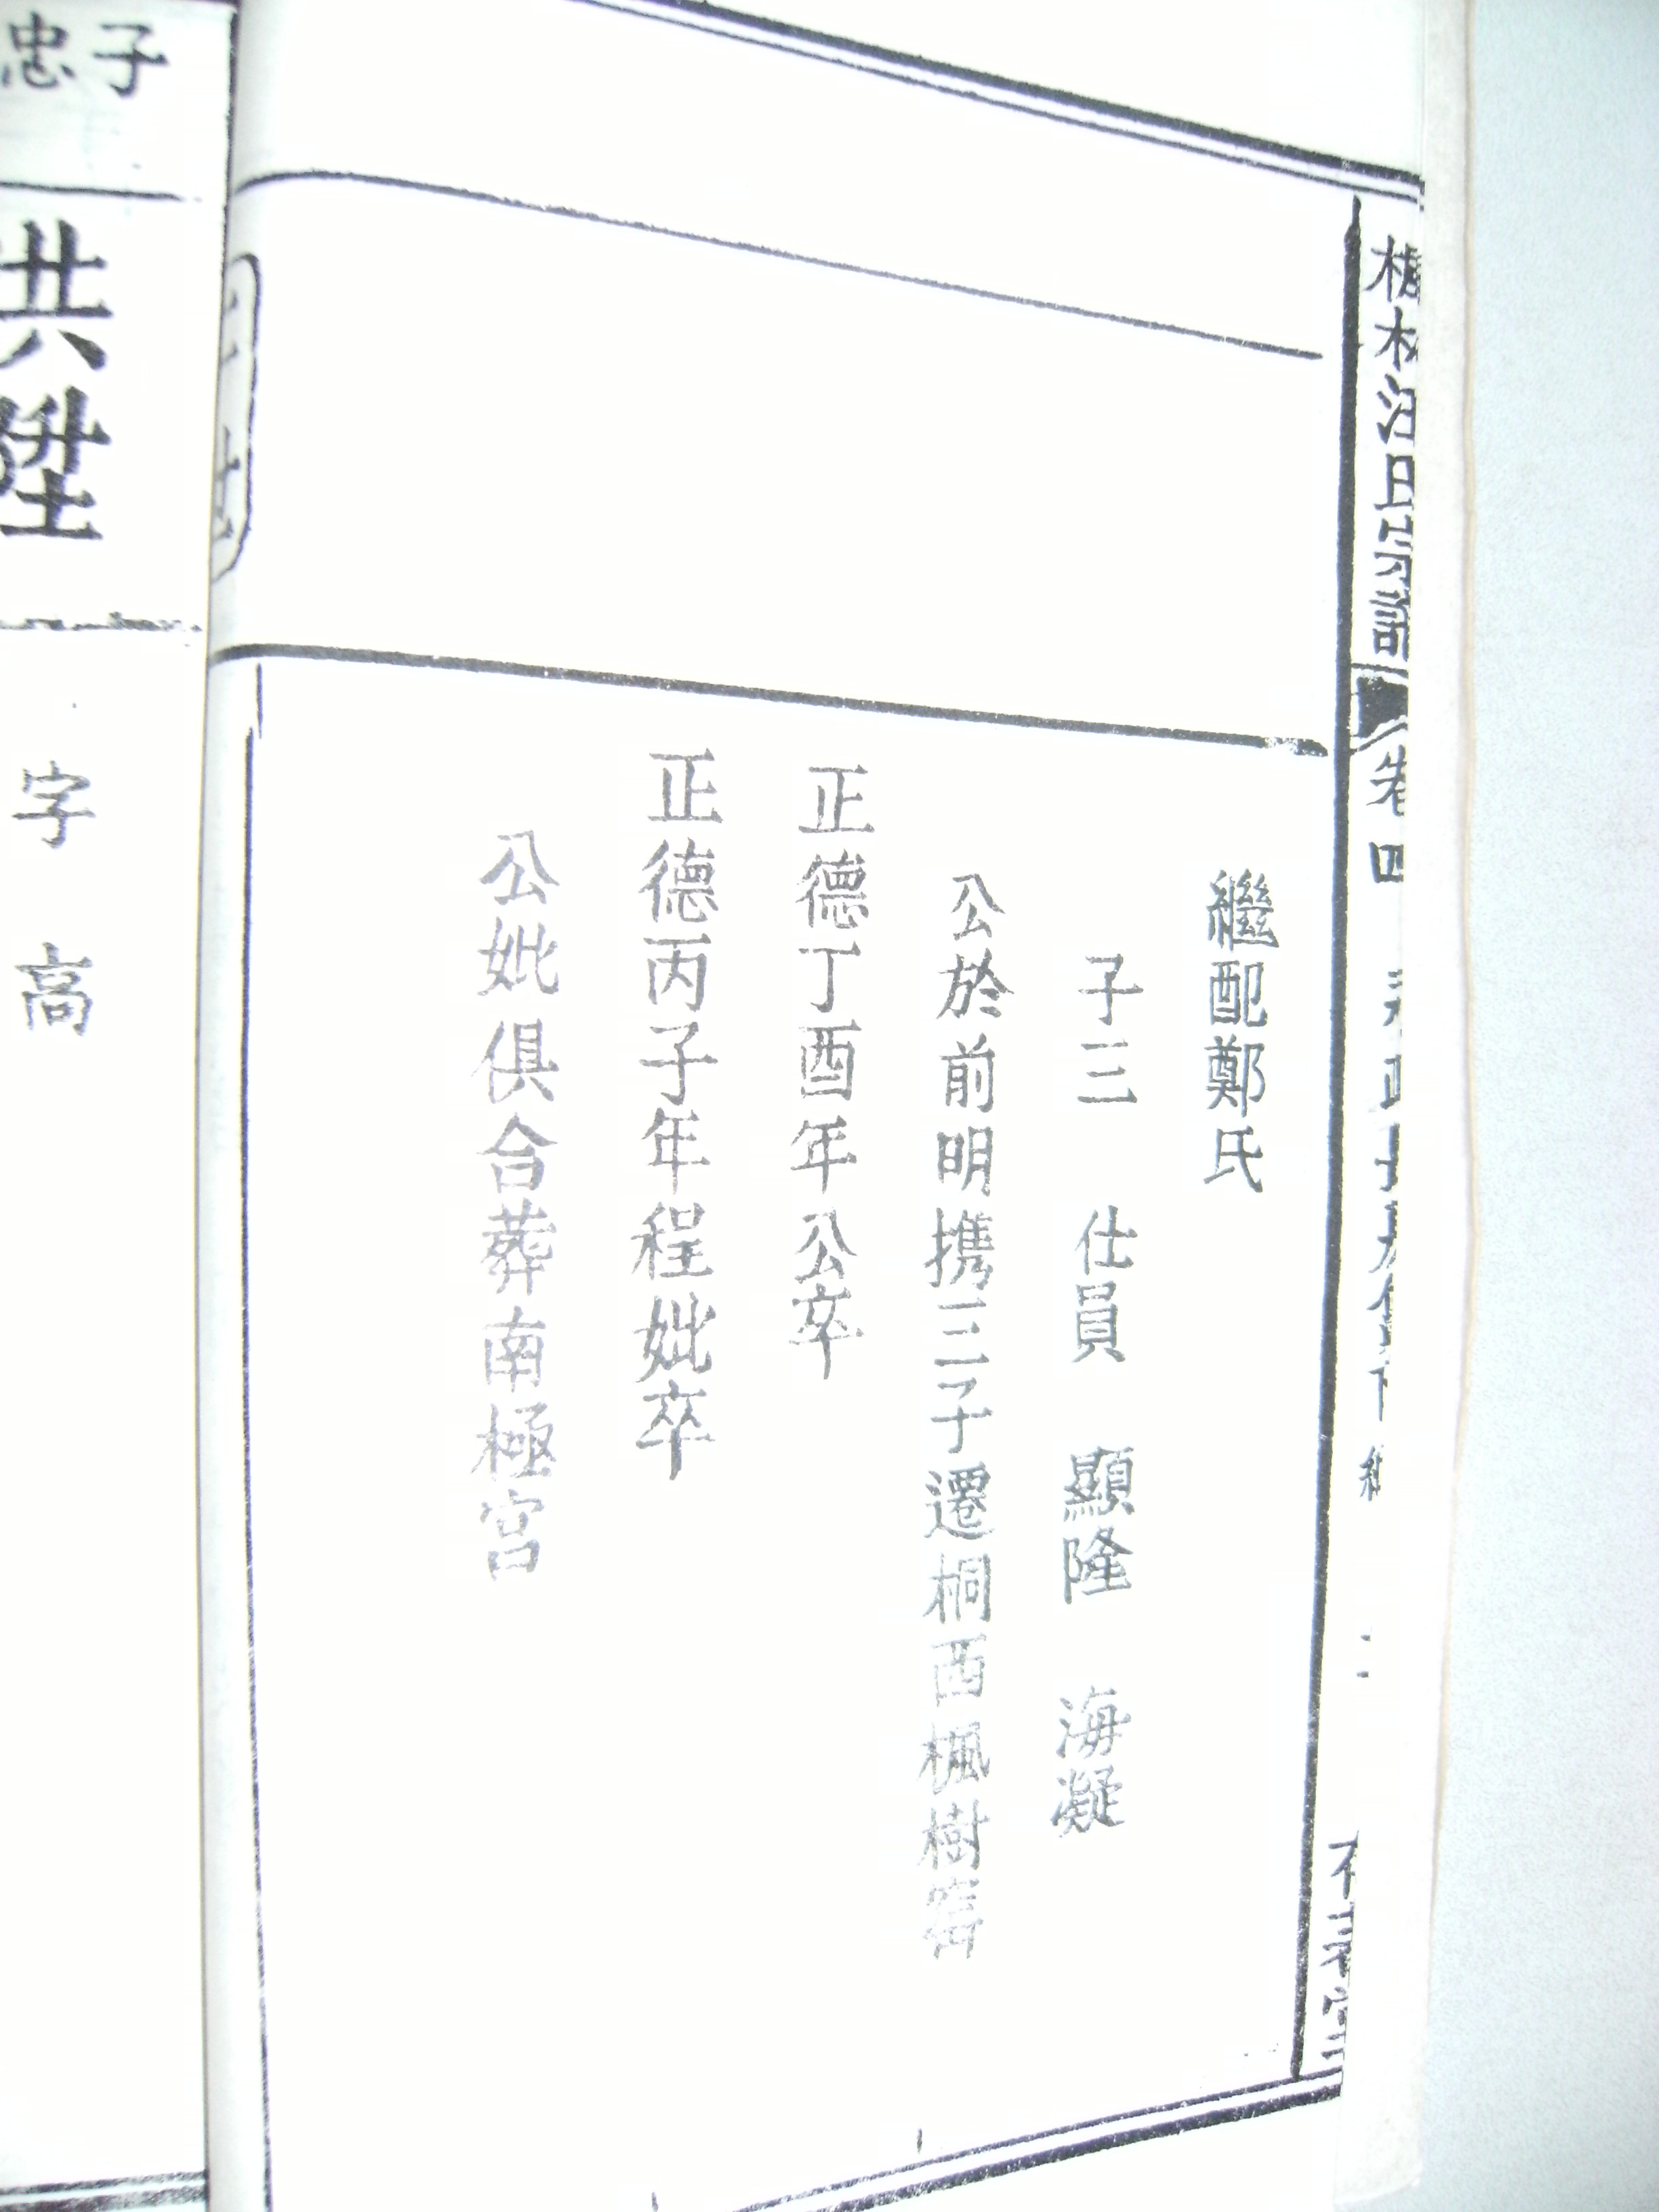 宗譜
卷四
繼配鄭氏
子三 仕員 顯隆 海凝
公於前明携三子遷桐西楓樹
正德丁酉年公卒
正德丙子年程妣卒
公妣俱合葬南極宮
子
忠
共陞
字高